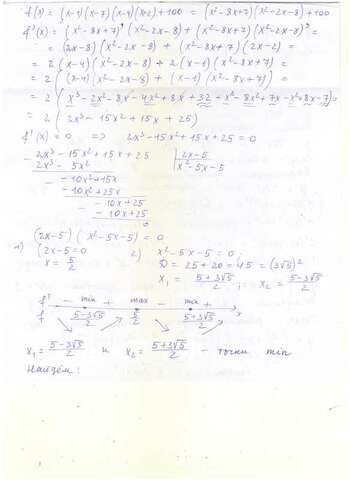 f(x) = (x-1)(x-7)(x-4)(x+2)+100 = (x²-8x+7)(x²-2x-8)+100
f'(x) = (x²-8x+7)'(x²-2x-8) + (x²-8x+7)(x²-2x-8)' =
= (2x-8)(x²-2x-8) + (x²-8x+7)(2x-2) =
= 2(x-4)(x²-2x-8) + 2(x-1)(x²-8x+7) =
= 2((x-4)(x²-2x-8) + (x-1)(x²-8x+7)) =
= 2(x³-2x²-8x-4x²+8x+32+x³-8x²+7x-x²+8x-7) =
= 2(2x³-15x²+15x+25)
f'(x) = 0 => 2x³-15x²+15x+25=0
- 2x³-15x²+15x+25 | 2x-5
2x³-5x² x²-5x-5
- -10x²+15x
-10x²+25x
- -10x+25
-10x+25
0
(2x-5)(x²-5x-5) = 0
1) 2x-5=0 2) x²-5x-5=0
x = 5/2 D = 25+20=45=(3√5)²
x₁ = (5+3√5)/2 ; x₂ = (5-3√5)/2
f' - min + max - min +
f (5-3√5)/2 5/2 (5+3√5)/2 x
x₁ = (5-3√5)/2 и x₂ = (5+3√5)/2 - точки min
Найдём: